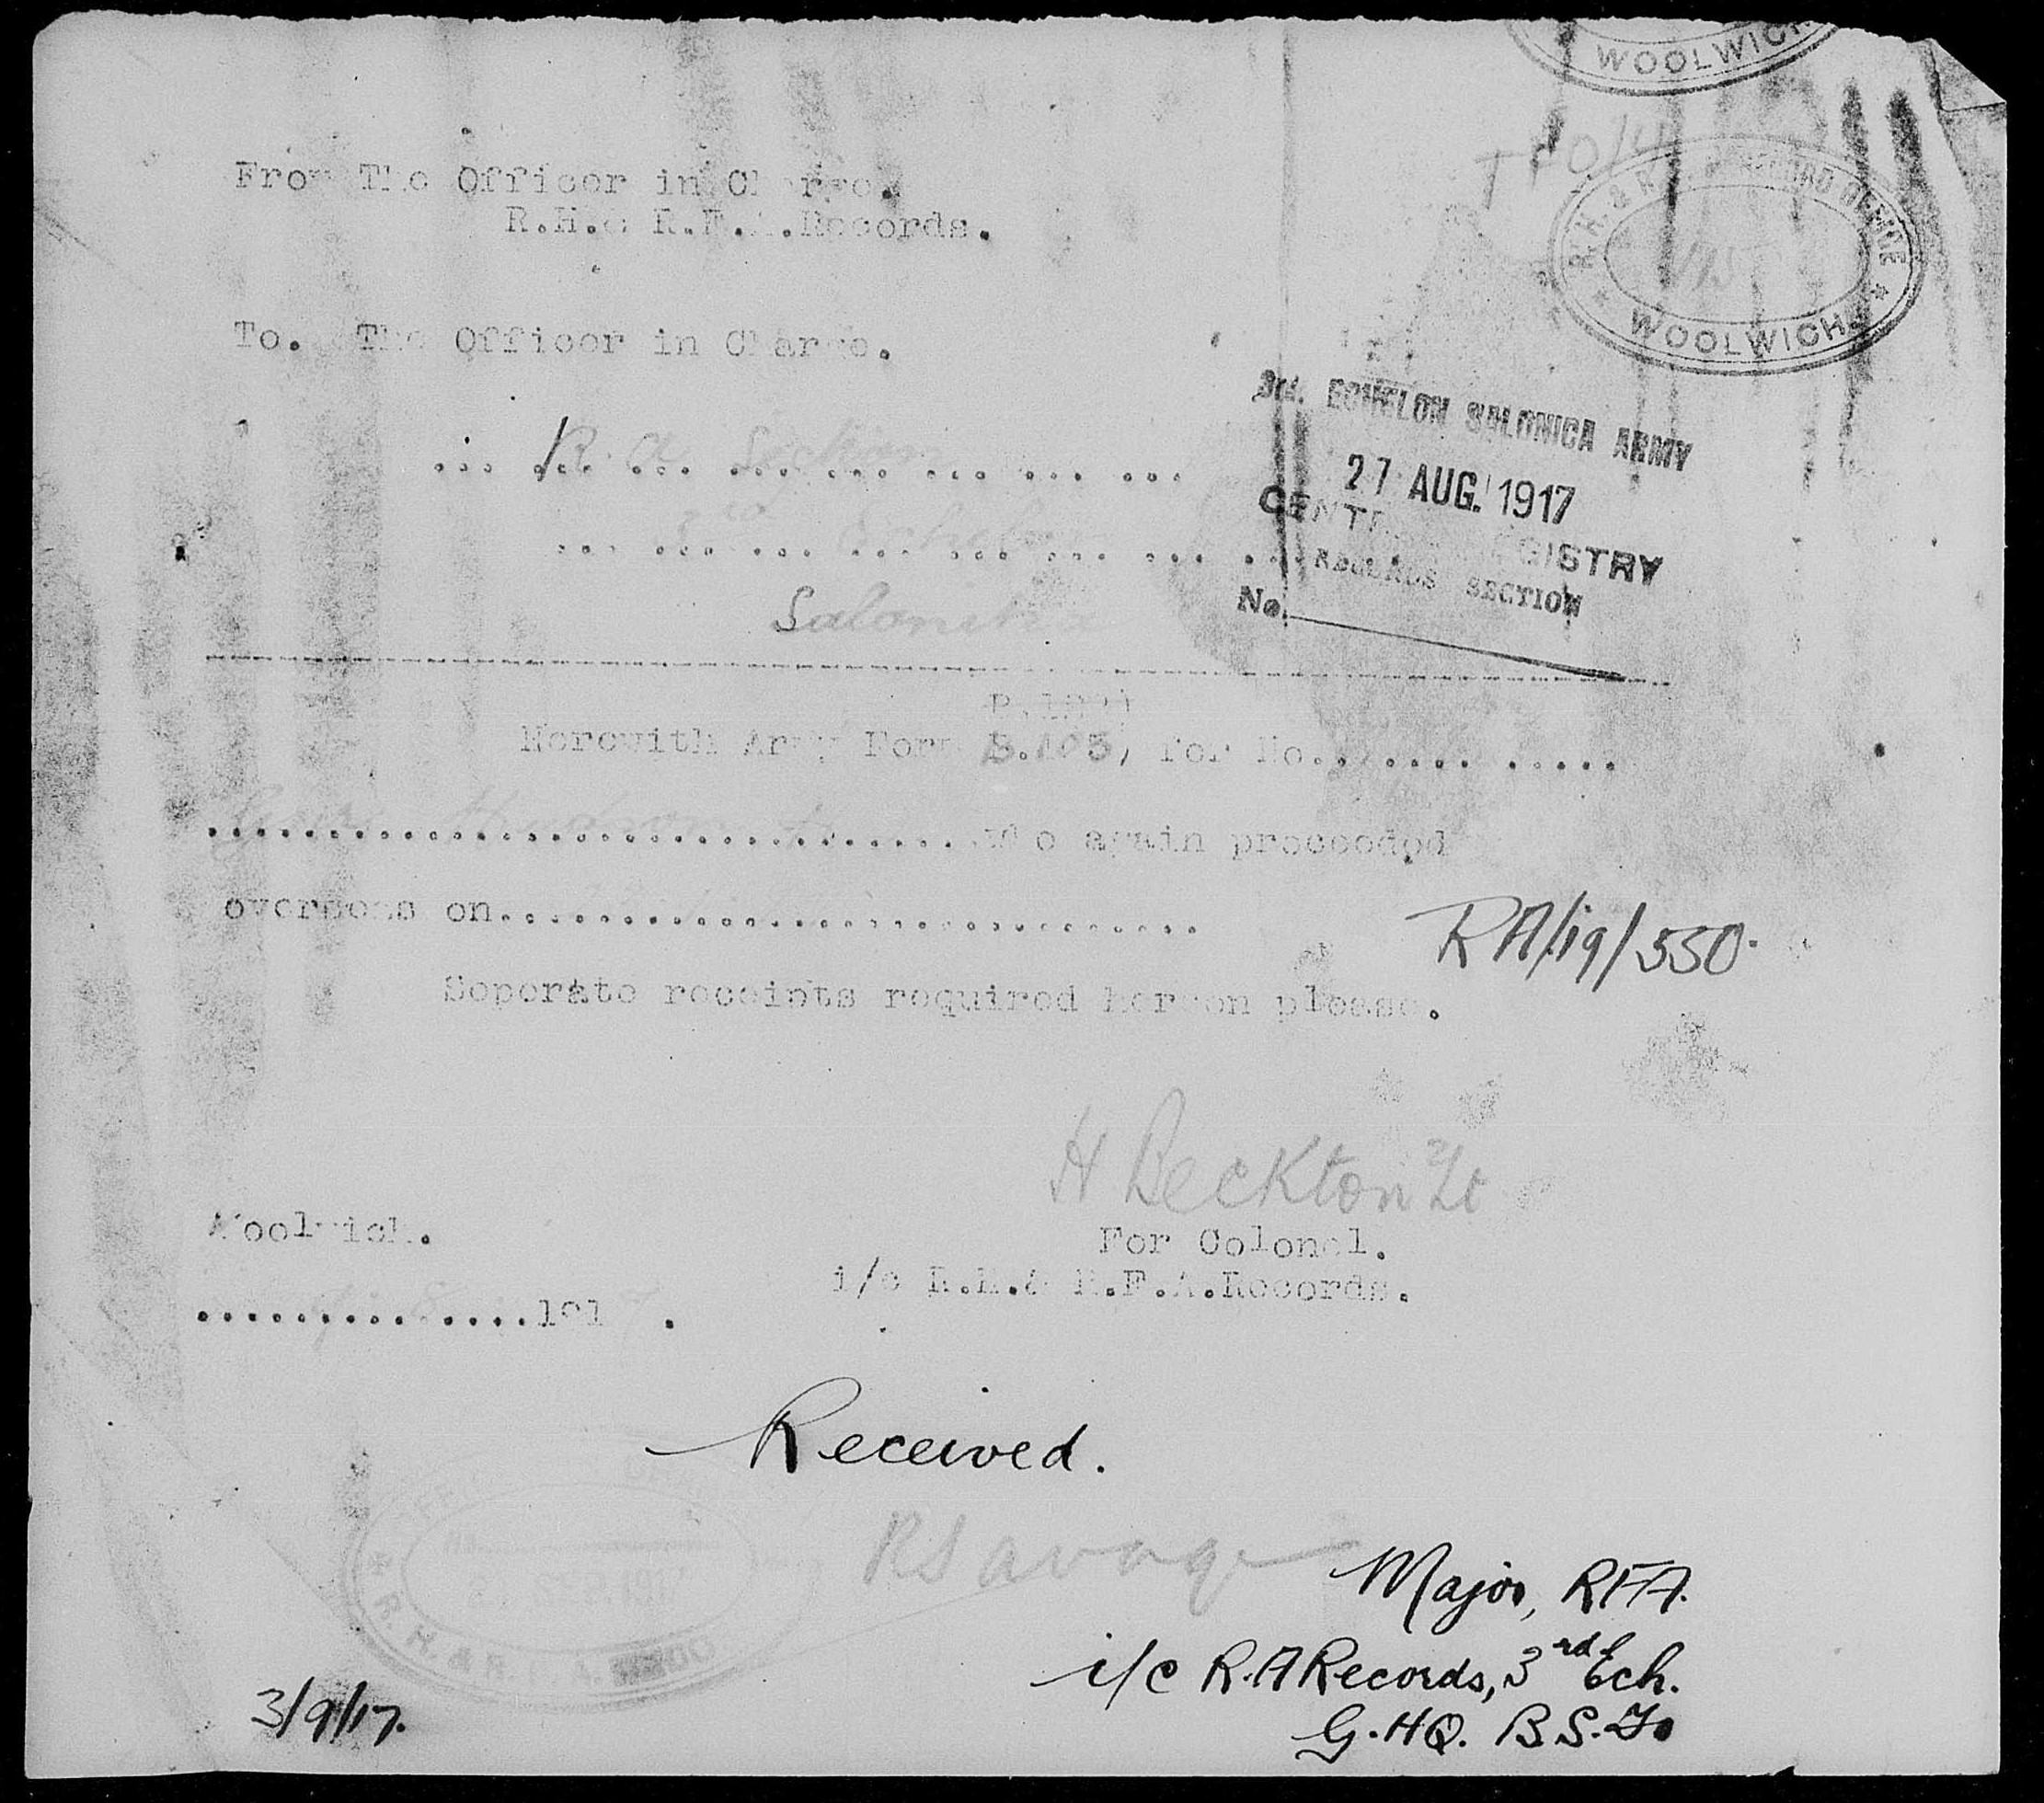 WOOLWICH
R.H. & R.F.A. RECORD OFFICE
WOOLWICH
From The Officer in Charge.
R.H.& R.F.A.Records.
To. The Officer in Charge.
R.A. Section
3rd Echelon
Salonika
3rd. ECHELON SALONICA ARMY
27 AUG. 1917
CENTRAL REGISTRY
RECORDS SECTION
No.
Herewith Army Form B.103, for No..............
.......................................who again proceeded
overseas on....................................
RA/19/550.
Seperate receipts required hereon please.
H Beckton 2/Lt
For Colonel.
i/c R.H.& R.F.A.Records.
Woolwich.
..............191 .
Received.
RSavage
Major, RFA.
i/c R.A Records, 3rd Ech.
G.HQ. B.S.F.
SEP.1917
R.H.& R.F.A.
3/9/17.